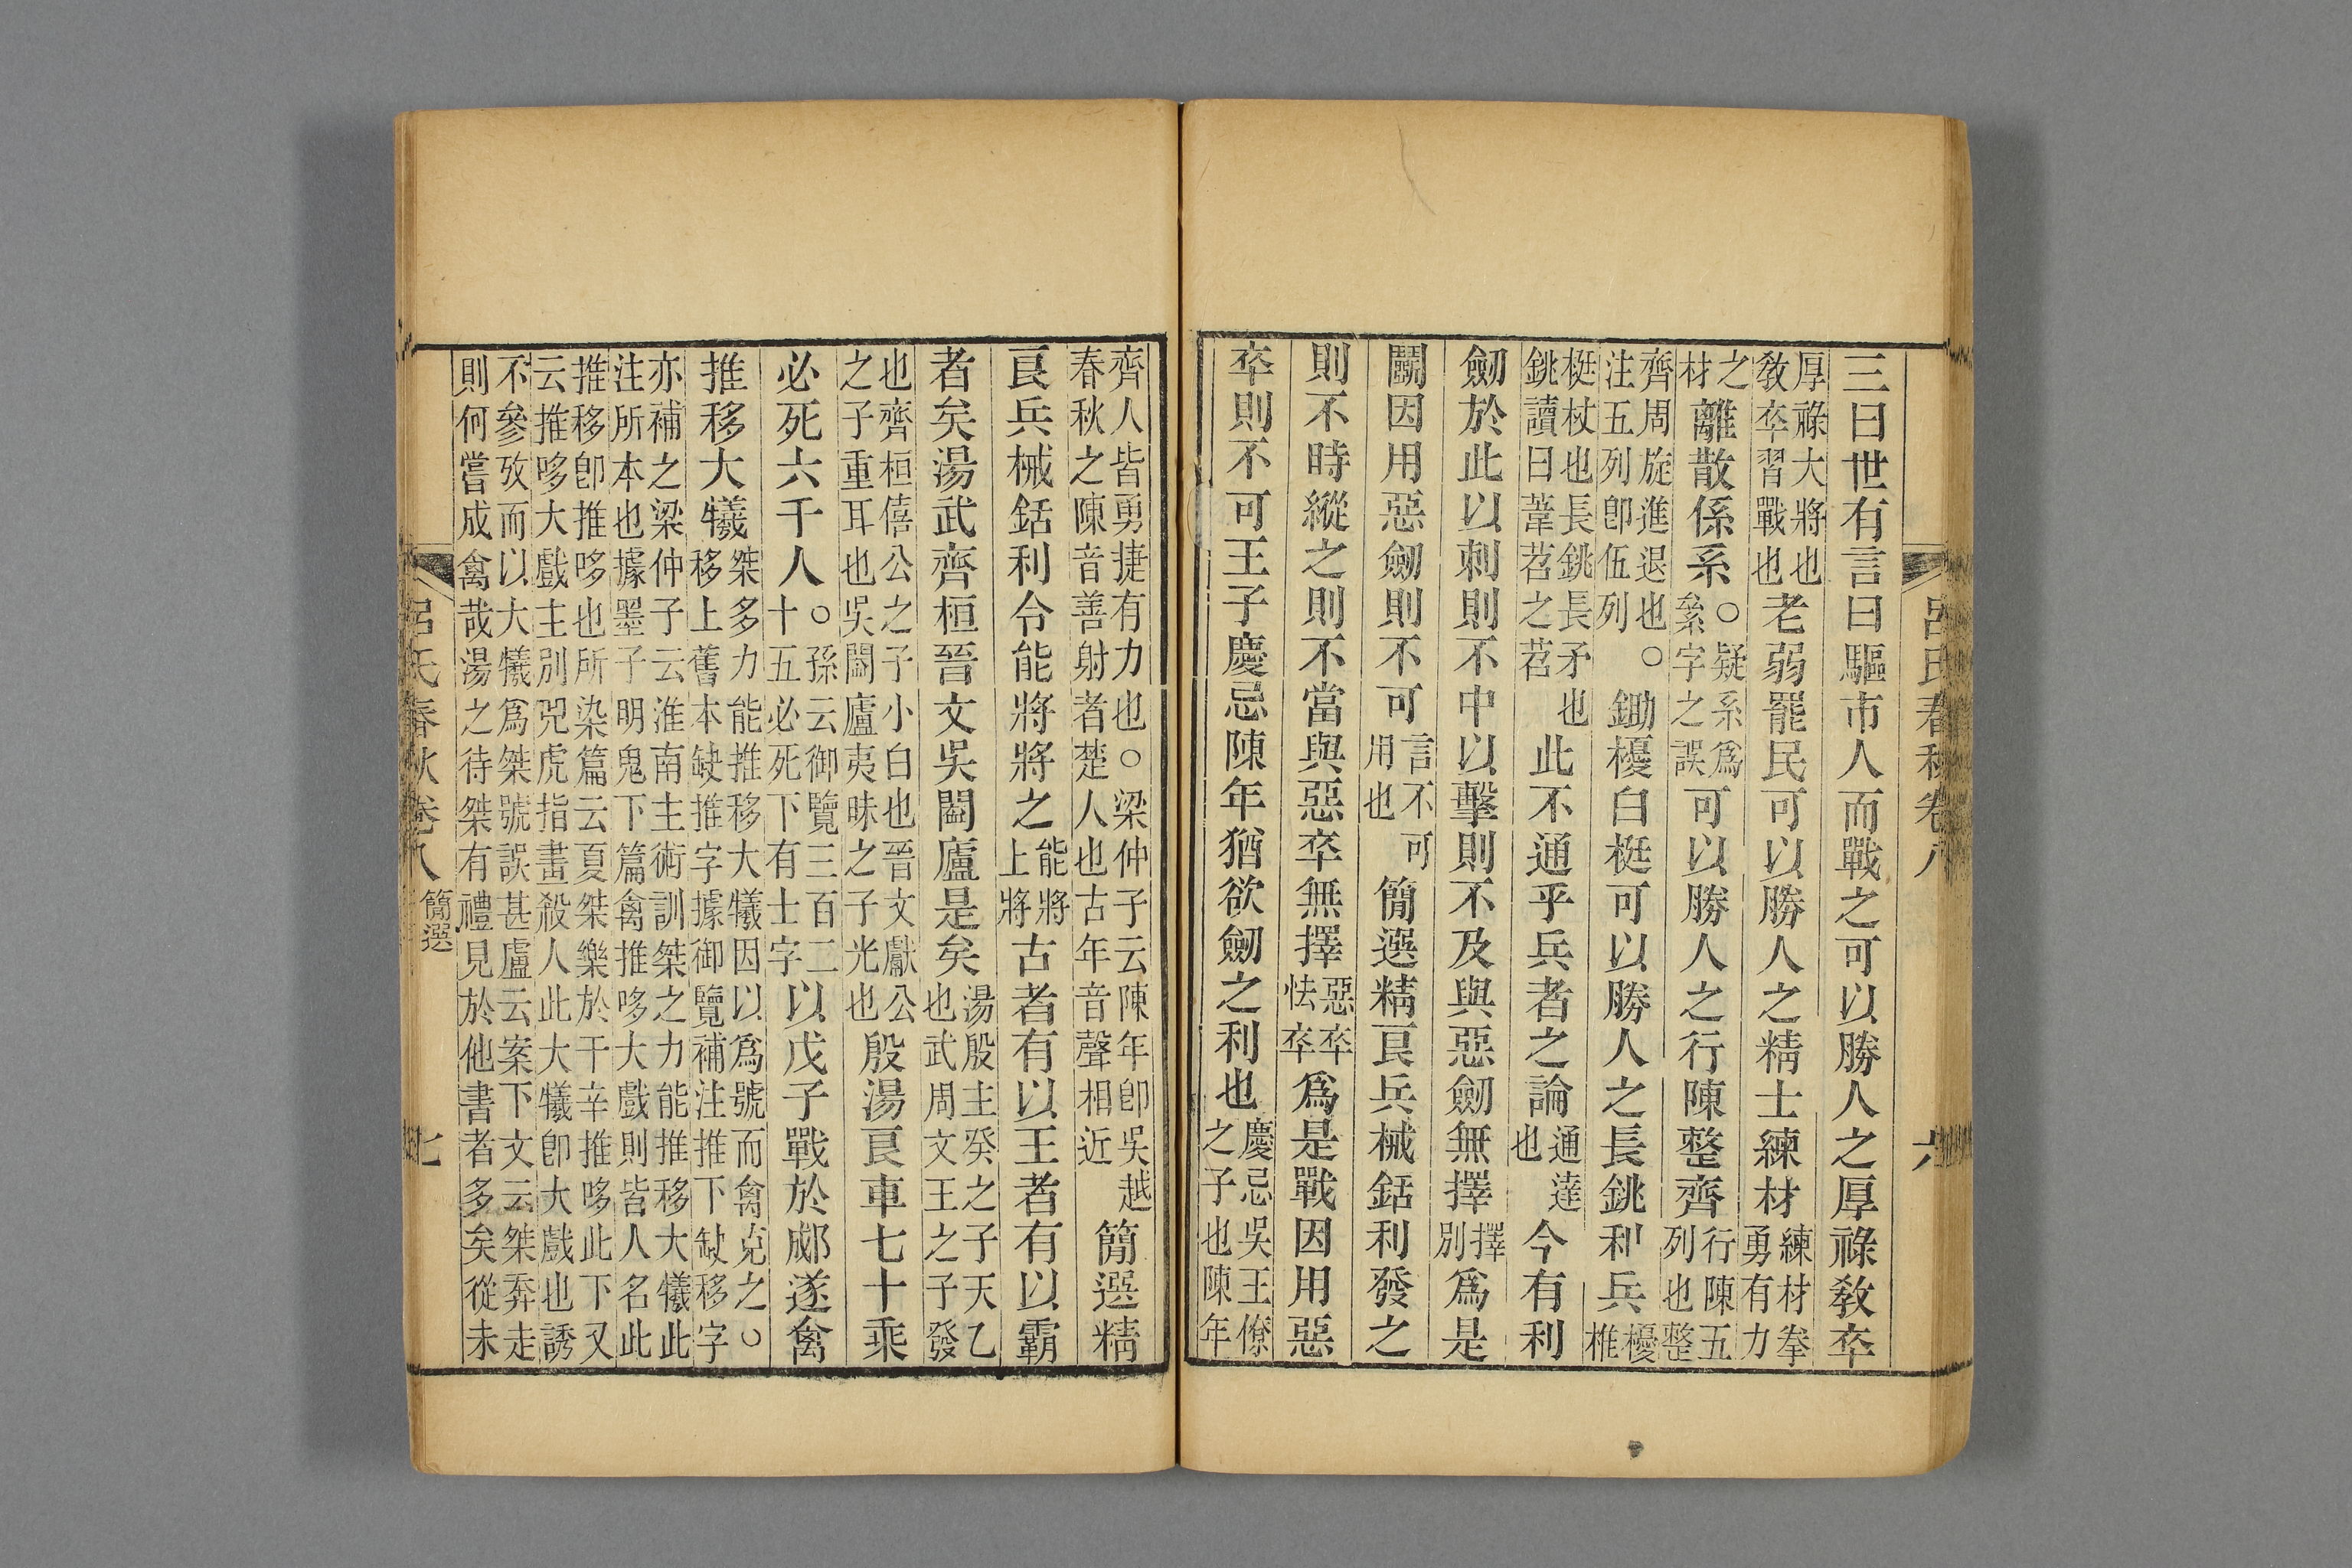 呂氏春秋卷八 六
三曰世有言曰驅市人而戰之可以勝人之厚祿敎卒
厚祿大將也敎卒習戰也老弱罷民可以勝人之精士練材練材拳勇有力
之材離散係系○疑系爲絫字之誤可以勝人之行陳整齊行陳五列也整
齊周旋進退也○注五列卽伍列鋤櫌白梃可以勝人之長銚利兵櫌椎
梃杖也長銚長矛也銚讀曰葦苕之苕此不通乎兵者之論通達也今有利
劒於此以刺則不中以擊則不及與惡劒無擇擇別爲是
鬭因用惡劒則不可言不可用也簡選精良兵械銛利發之
則不時縱之則不當與惡卒無擇惡卒怯卒爲是戰因用惡
卒則不可王子慶忌陳年猶欲劒之利也慶忌吳王僚之子也陳年
齊人皆勇捷有力也○梁仲子云陳年卽吳越春秋之陳音善射者楚人也古年音聲相近簡選精
良兵械銛利令能將將之能將上將古者有以王者有以霸
者矣湯武齊桓晉文吳闔廬是矣湯殷主癸之子天乙也武周文王之子發
也齊桓僖公之子小白也晉文獻公之子重耳也吳闔廬夷昧之子光也殷湯良車七十乘
必死六千人○孫云御覽三百二十五必死下有士字以戊子戰於郕遂禽
推移大犧桀多力能推移大犧因以爲號而禽克之○移上舊本缺推字據御覽補注推下缺移字
亦補之梁仲子云淮南主術訓桀之力能推移大犧此注所本也據墨子明鬼下篇禽推哆大戲則皆人名此
推移卽推哆也所染篇云夏桀樂於干辛推哆此下又云推哆大戲主別兕虎指畫殺人此大犧卽大戲也誘
不參攷而以大犧爲桀號誤甚盧云案下文云桀奔走則何嘗成禽哉湯之待桀有禮見於他書者多矣從未
呂氏春秋卷八 簡選 七